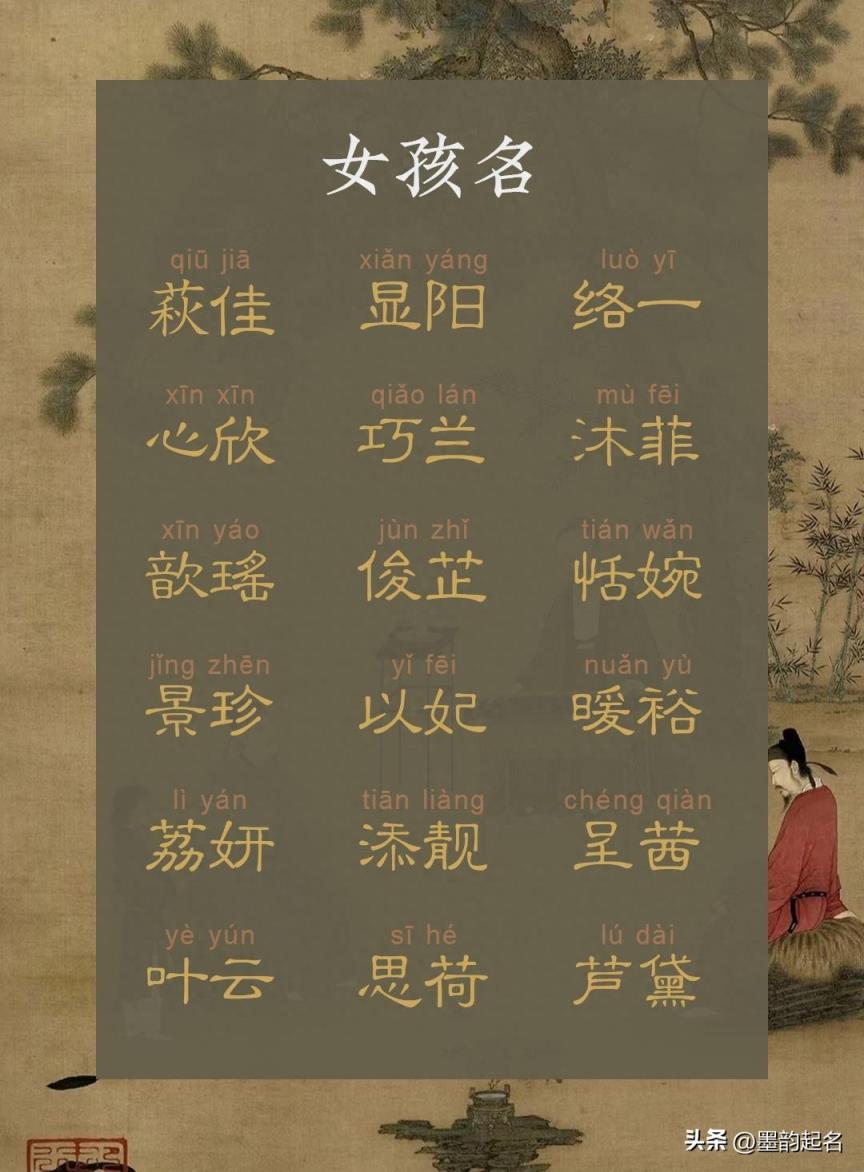 女孩名
qiū jiā xiǎn yáng luò yī
萩佳 显阳 络一
xīn xīn qiǎo lán mù fēi
心欣 巧兰 沐菲
xīn yáo jùn zhǐ tián wǎn
歆瑶 俊芷 恬婉
jǐng zhēn yǐ fēi nuǎn yù
景珍 以妃 暖裕
lì yán tiān liàng chéng qiàn
荔妍 添靓 呈茜
yè yún sī hé lú dài
叶云 思荷 芦黛
头条 @墨韵起名